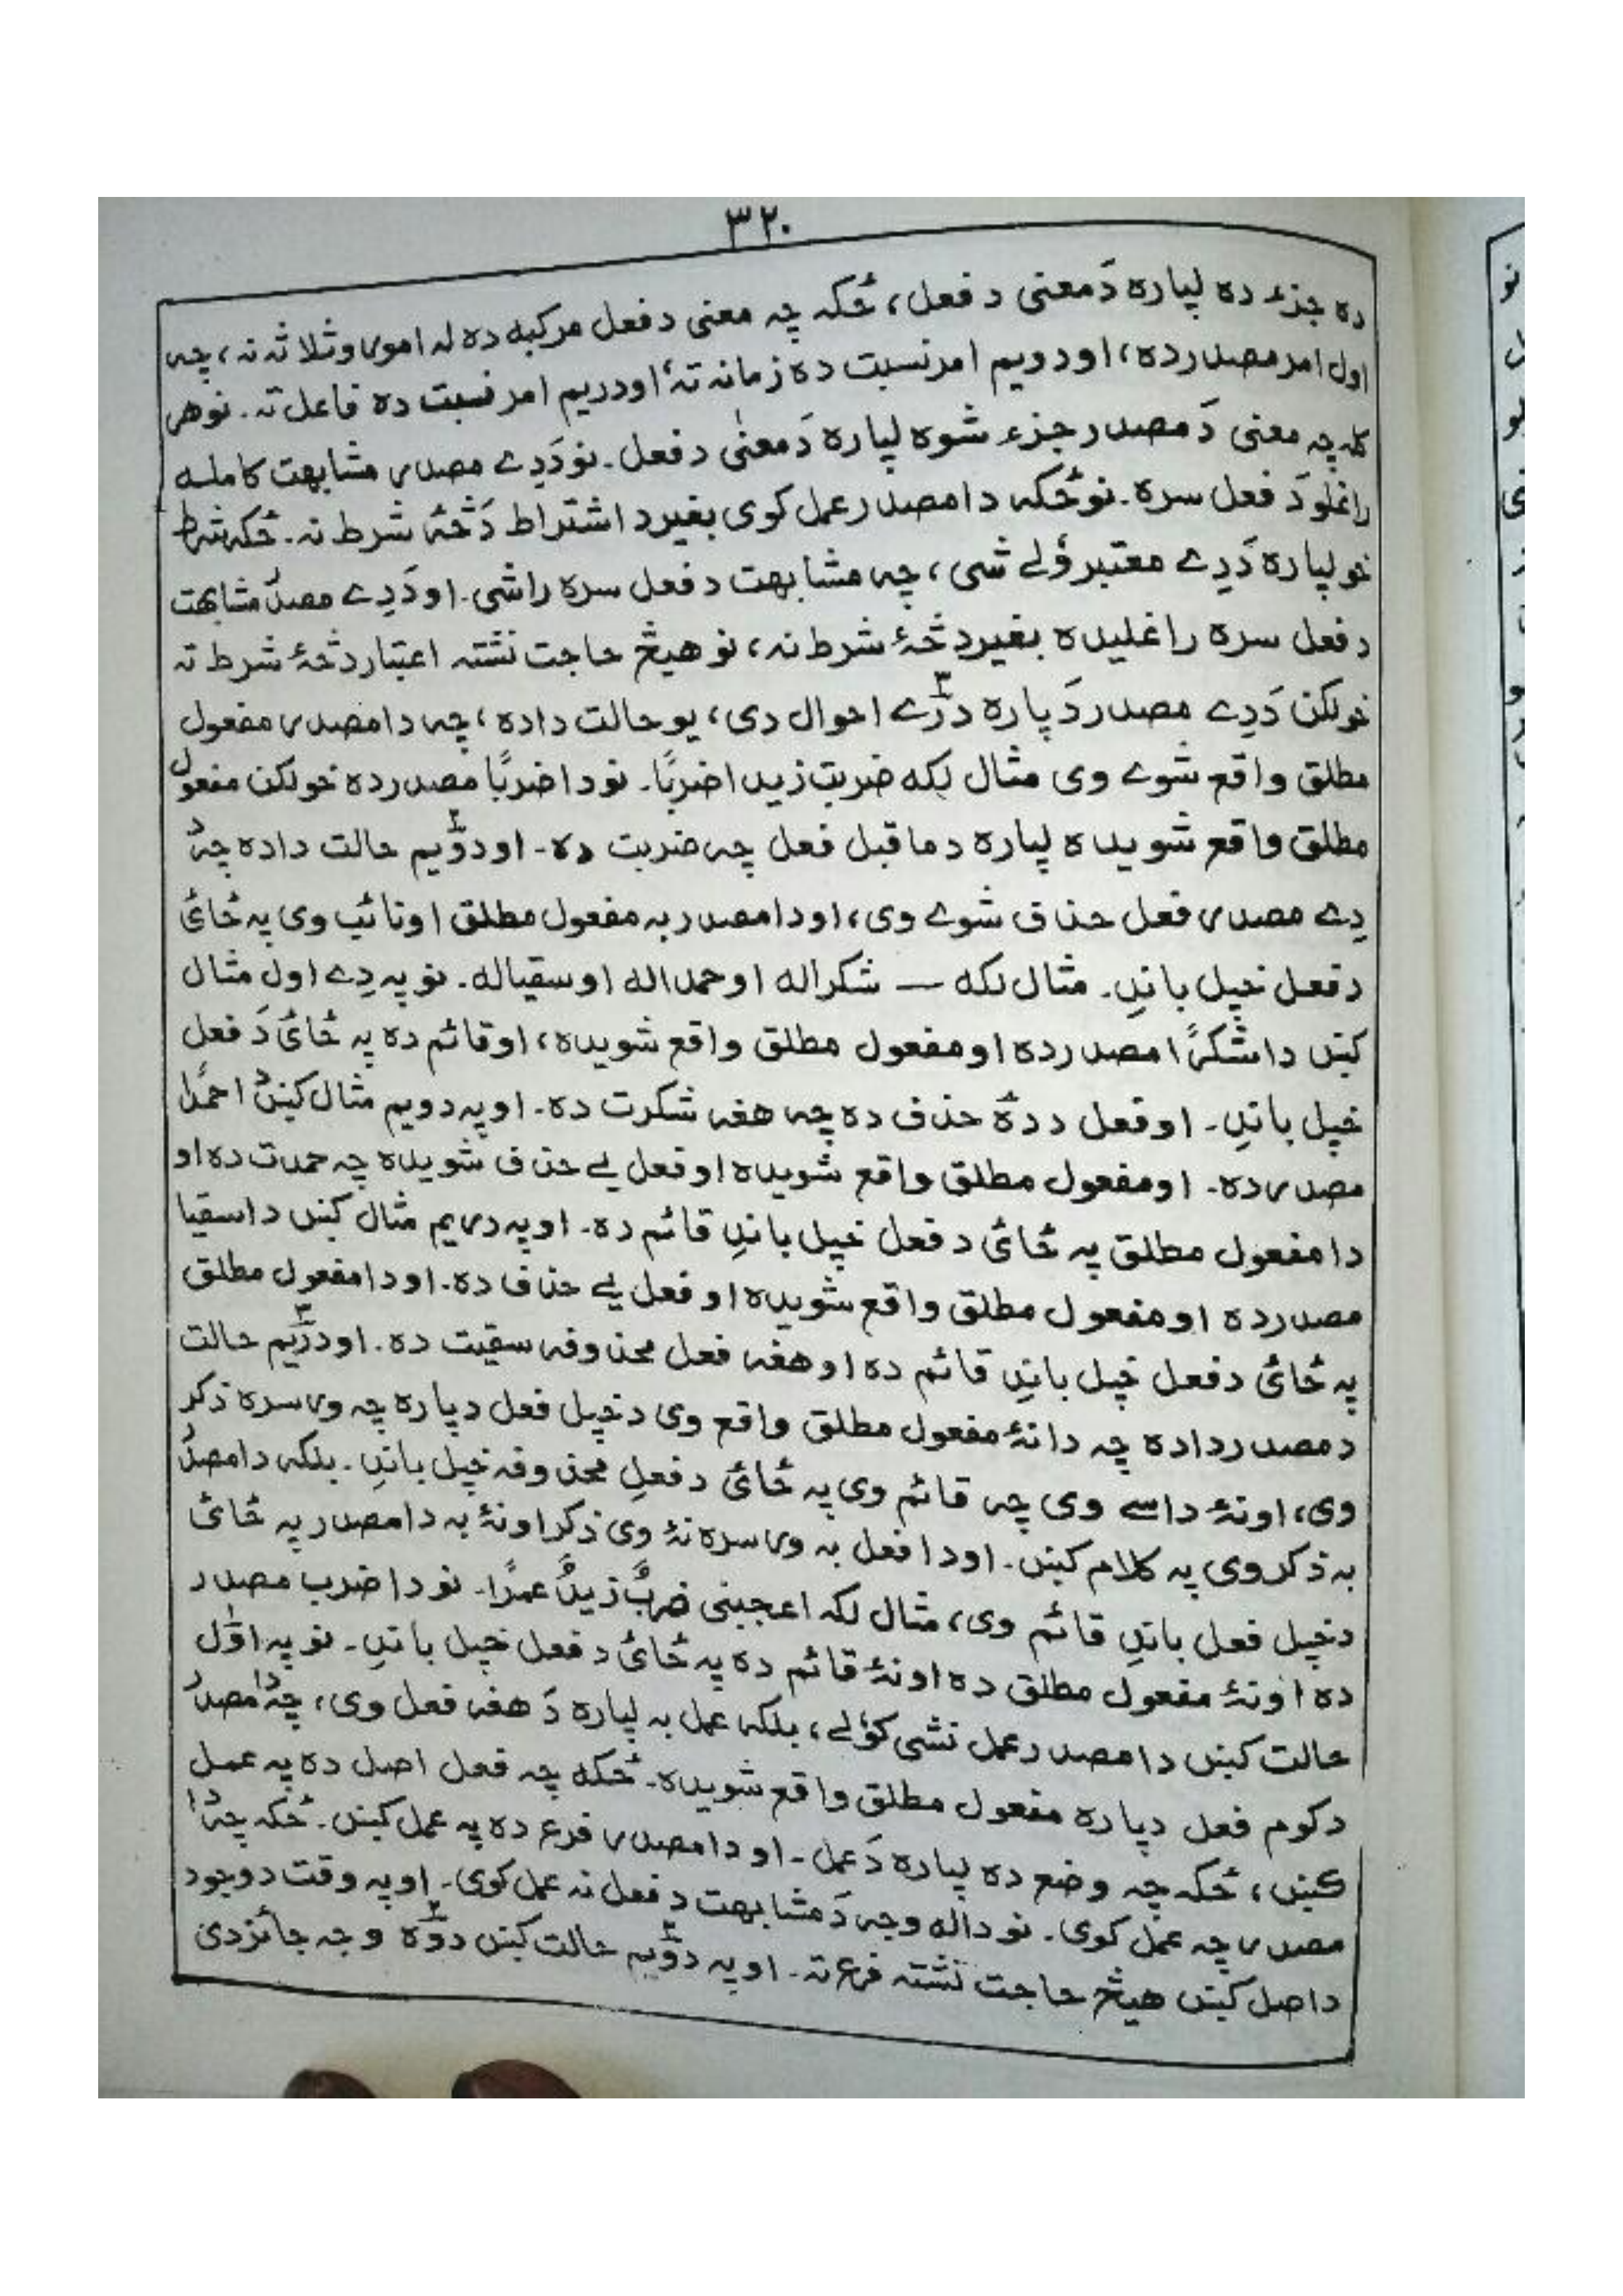 ۳۲۰
ده جزء ده لپاره دَمعنی د فعل، ځکه چه معنی د فعل مرکبه ده له اموروثلاثه نه، چه
اول امر مصدر ده، او دویم امر نسبت ده زمانه تهٔ او دریم امر نسبت ده فاعل ته۔ نو هر
کله چه معنی دَ مصدر جزء شوه لپاره دَ معنیٰ د فعل۔ نو دَدِے مصدر مشابهت کامله
راغلو دَ فعل سره۔ نو ځکه دا مصدر عمل کوی بغیر د اشتراط دَ څهٔ شرط نه۔ ځکه شرط
خو لپاره دَدِے معتبر وُلے شی، چه مشابهت د فعل سره راشی۔ او دَدِے مصدر مشابهت
د فعل سره راغلیده بغیر د څهٔ شرط نه، نو هیڅ حاجت نشته اعتبار د څهٔ شرط ته
خو لکن دَدِے مصدر دَ پاره درٓے ۳ احوال دی، یو حالت داده، چه دا مصدر مفعول
مطلق واقع شوے وی مثال لکه ضربت زیدا ضربًا۔ نو دا ضربًا مصدر ده خو لکن مفعول
مطلق واقع شویده لپاره د ماقبل فعل چه ضربت ده۔ او دوّیم ۲ حالت داده چه د
دِے مصدر فعل حذف شوے وی، او دا مصدر به مفعول مطلق او نائب وی په ځائ
د فعل خپل باندِ۔ مثال لکه — شکراله او حمداله او سقیاله۔ نو په دِے اول مثال
کښ دا شکرًا مصدر ده او مفعول مطلق واقع شویده، او قائم ده په ځائ دَ فعل
خپل باندِ۔ او فعل د دهٔ حذف ده چه هغه شکرت ده۔ او په دویم مثال کښ دا حمدًا
مصدر ده۔ او مفعول مطلق واقع شویده او فعل یے حذف شویده چه حمدت ده او
دا مفعول مطلق په ځائ د فعل خپل باندِ قائم ده۔ او په دریم مثال کښ دا سقیا
مصدر ده او مفعول مطلق واقع شویده او فعل یے حذف ده۔ او دا مفعول مطلق
په ځائ د فعل خپل باندِ قائم ده او هغه فعل محذوفه سقیت ده۔ او درّیم ۳ حالت
د مصدر داده چه دا نهٔ مفعول مطلق واقع وی د خپل فعل دپاره چه ور سره ذکر
وی، او نهٔ داسے وی چه قائم وی په ځائ د فعلِ محذوفه خپل باندِ۔ بلکه دا مصدر
به ذکر وی په کلام کښ۔ او دا فعل به ور سره نهٔ وی ذکر او نهٔ به دا مصدر په ځائ
د خپل فعل باندِ قائم وی، مثال لکه اعجبنی ضربٌ زیدٌ عمرًا۔ نو دا ضرب مصدر
ده او نهٔ مفعول مطلق ده او نهٔ قائم ده په ځائ د فعل خپل باندِ۔ نو په اوّل
حالت کښ دا مصدر عمل نشی کوُلے، بلکه عمل به لپاره دَ هغه فعل وی، چه دا مصدر
د کوم فعل دپاره مفعول مطلق واقع شویده۔ ځکه چه فعل اصل ده په عمل
کښ، ځکه چه وضع ده لپاره دَ عمل۔ او دا مصدر فرع ده په عمل کښ۔ ځکه چه دا
مصدر چه عمل کوی۔ نو داله وجه دَ مشابهت د فعل نه عمل کوی۔ او په وقت د وجود
د اصل کښ هیڅ حاجت نشته فرع ته۔ او په دوّیم ۲ حالت کښ دوّه ۲ وجه جائز دی